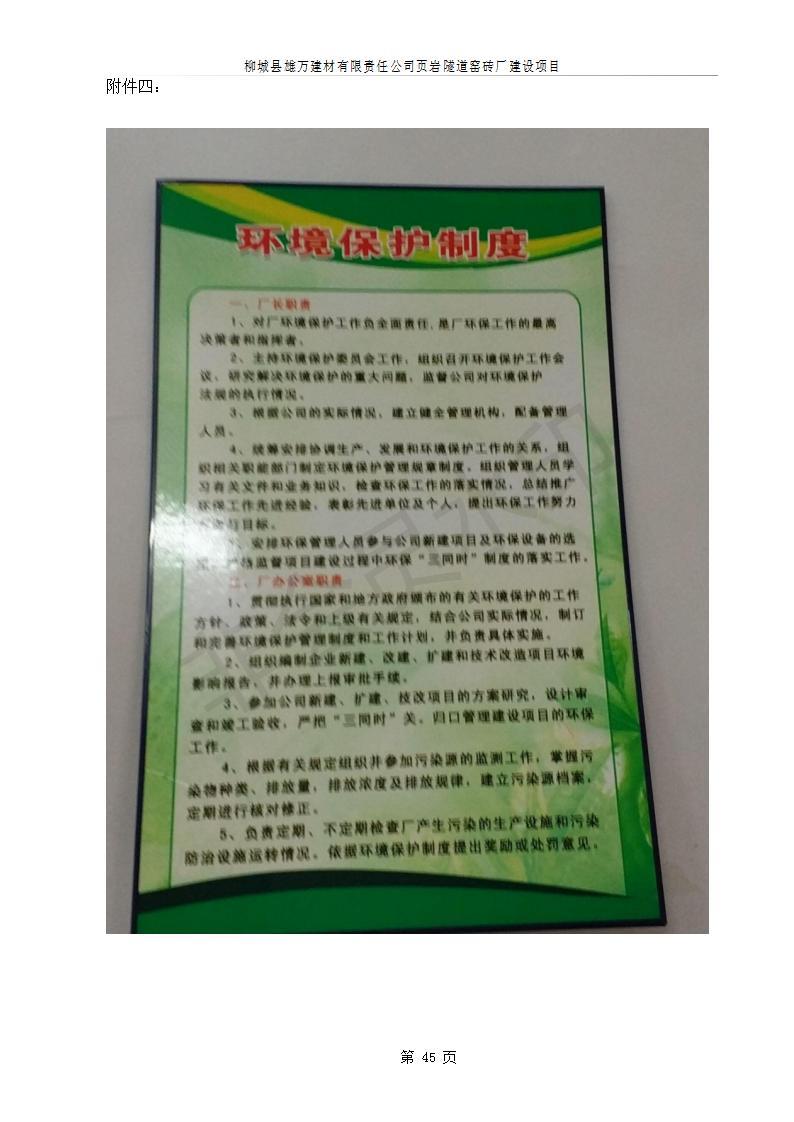 柳城县雄万建材有限责任公司页岩隧道窑砖厂建设项目
附件四：
环境保护制度
一、厂长职责
1、对厂环境保护工作负全面责任,是厂环保工作的最高
决策者和指挥者。
2、主持环境保护委员会工作，组织召开环境保护工作会
议、研究解决环境保护的重大问题，监督公司对环境保护
法规的执行情况。
3、根据公司的实际情况，建立健全管理机构，配备管理
人员。
4、统筹安排协调生产、发展和环境保护工作的关系，组
织相关职能部门制定环境保护管理规章制度，组织管理人员学
习有关文件和业务知识，检查环保工作的落实情况，总结推广
环保工作先进经验，表彰先进单位及个人，提出环保工作努力
与目标。
、安排环保管理人员参与公司新建项目及环保设备的选
格监督项目建设过程中环保“三同时”制度的落实工作。
二、厂办公室职责
1、贯彻执行国家和地方政府颁布的有关环境保护的工作
方针、政策、法令和上级有关规定，结合公司实际情况，制订
和完善环境保护管理制度和工作计划，并负责具体实施。
2、组织编制企业新建、改建、扩建和技术改造项目环境
影响报告，并办理上报审批手续。
3、参加公司新建、扩建、技改项目的方案研究，设计审
查和竣工验收，严把“三同时”关。归口管理建设项目的环保
工作。
4、根据有关规定组织并参加污染源的监测工作，掌握污
染物种类、排放量，排放浓度及排放规律，建立污染源档案，
定期进行核对修正。
5、负责定期、不定期检查厂产生污染的生产设施和污染
防治设施运转情况。依据环境保护制度提出奖励或处罚意见。
第 45 页